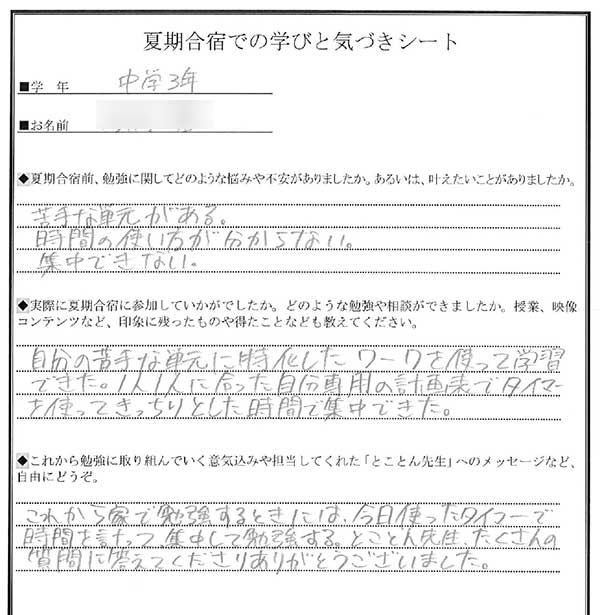 夏期合宿での学びと気づきシート
■学　年　中学3年
■お名前
◆夏期合宿前、勉強に関してどのような悩みや不安がありましたか。あるいは、叶えたいことがありましたか。
苦手な単元がある。
時間の使い方が分からない。
集中できない。
◆実際に夏期合宿に参加していかがでしたか。どのような勉強や相談ができましたか。授業、映像
コンテンツなど、印象に残ったものや得たことなども教えてください。
自分の苦手な単元に特化したワークを使って学習
できた。1人1人に合った自分専用の計画表でタイマー
を使ってきっちりとした時間で集中できた。
◆これから勉強に取り組んでいく意気込みや担当してくれた「とことん先生」へのメッセージなど、
自由にどうぞ。
これから家で勉強するときには、今日使ったタイマーで
時間を計って集中して勉強する。とことん先生、たくさんの
質問に答えてくださりありがとうございました。